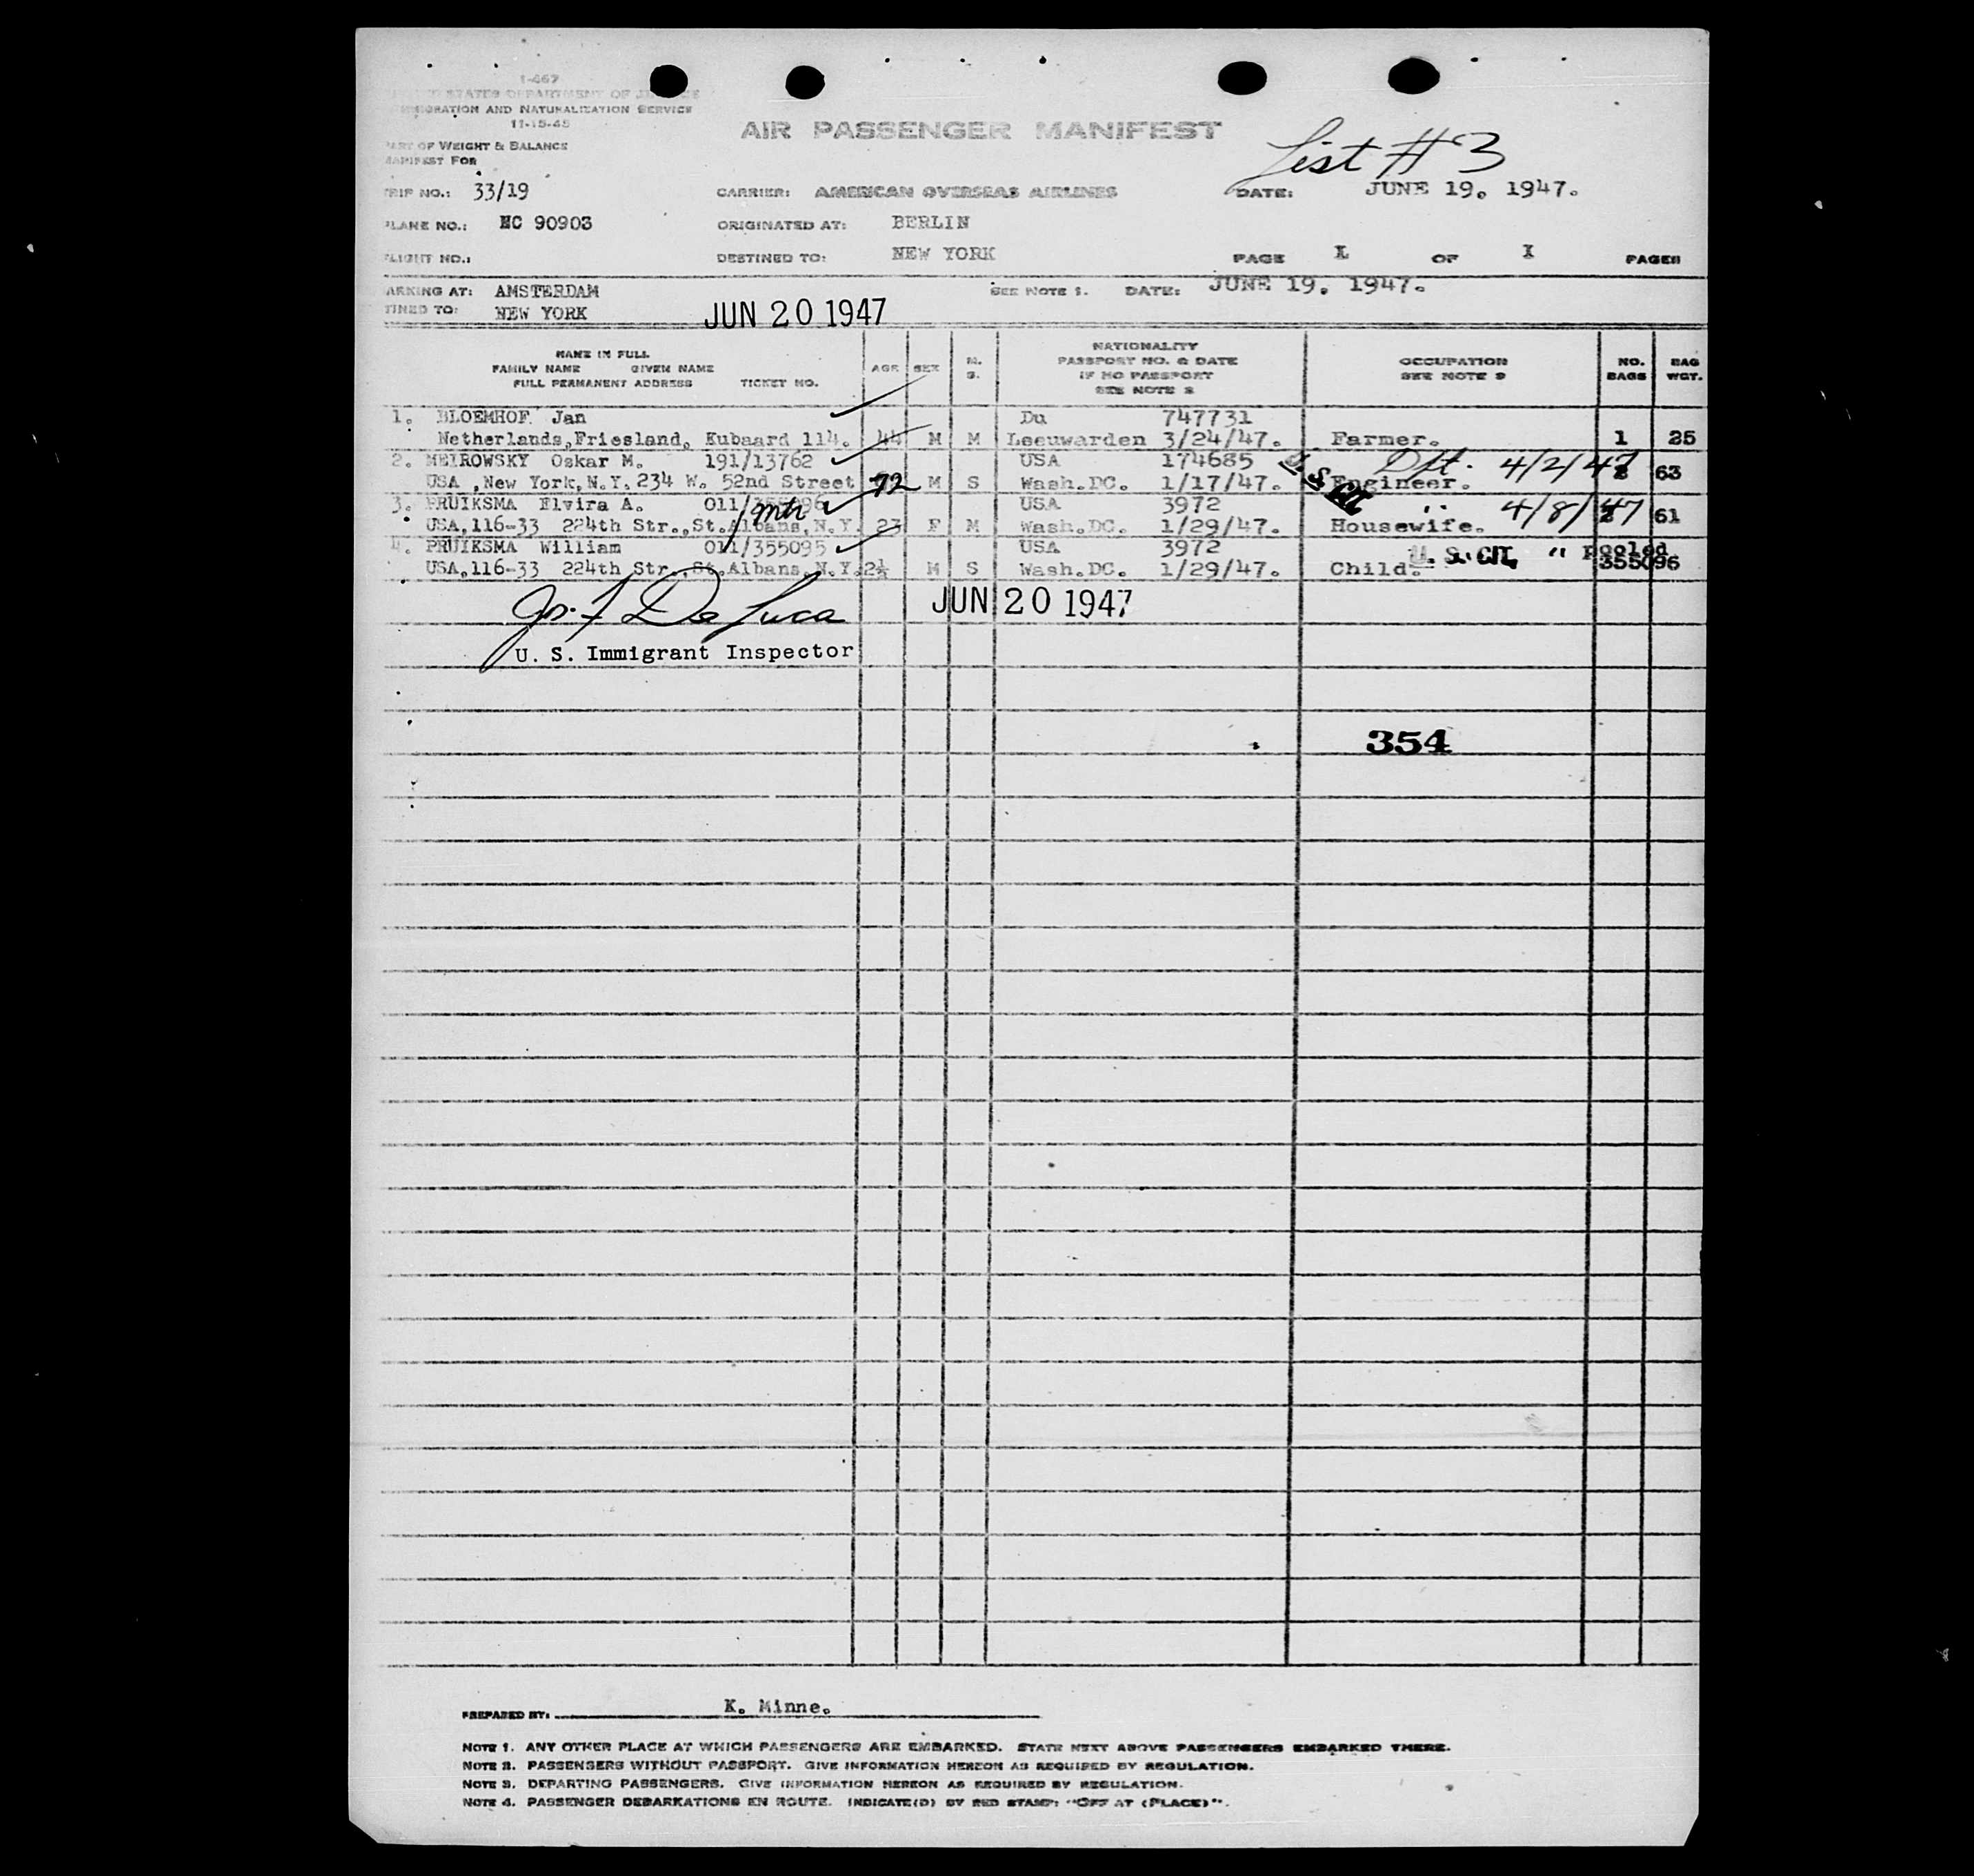 1-467
STATES DEPARTMENT OF
IMMIGRATION AND NATURALIZATION SERVICE
11-15-45
PART OF WEIGHT & BALANCE
MANIFEST FOR
AIR PASSENGER MANIFEST
List #3
TRIP NO.: 33/19 CARRIER: AMERICAN OVERSEAS AIRLINES DATE: JUNE 19. 1947.
PLANE NO.: NC 90903 ORIGINATED AT: BERLIN
FLIGHT NO.: DESTINED TO: NEW YORK PAGE I OF I PAGES
ARKING AT: AMSTERDAM SEE NOTE 1. DATE: JUNE 19. 1947.
TINED TO: NEW YORK JUN 20 1947
NAME IN FULL
FAMILY NAME GIVEN NAME
FULL PERMANENT ADDRESS TICKET NO.
AGE SEX M. S.
NATIONALITY
PASSPORT NO. & DATE
IF NO PASSPORT
SEE NOTE 2
OCCUPATION
SEE NOTE 3
NO. BAGS
BAG WGT.
1. BLOEMHOF Jan Du 747731
Netherlands,Friesland, Kubaard 114. 44 M M Leeuwarden 3/24/47. Farmer. 1 25
2. MEIROWSKY Oskar M. 191/13762 USA 174685 Dpt. 4/2/47 63
USA ,New York,N.Y. 234 W. 52nd Street 72 M S Wash.DC. 1/17/47. U S CIT Engineer.
3. PRUIKSMA Elvira A. 011/ USA 3972 " 4/8/47 61
USA,116-33 224th Str.,St.Albans,N.Y. 23 F M Wash.DC. 1/29/47. Housewife.
4. PRUIKSMA William 011/355095 USA 3972 U. S. CIT. " Pooled
USA,116-33 224th Str.,St.Albans,N.Y. 2½ M S Wash.DC. 1/29/47. Child. 355096
Jos. F De Luca JUN 20 1947
U. S. Immigrant Inspector
354
PREPARED BY: K. Minne.
NOTE 1. ANY OTHER PLACE AT WHICH PASSENGERS ARE EMBARKED. STATE NEXT ABOVE PASSENGERS EMBARKED THERE.
NOTE 2. PASSENGERS WITHOUT PASSPORT. GIVE INFORMATION HEREON AS REQUIRED BY REGULATION.
NOTE 3. DEPARTING PASSENGERS. GIVE INFORMATION HEREON AS REQUIRED BY REGULATION.
NOTE 4. PASSENGER DEBARKATIONS EN ROUTE. INDICATE(D) BY RED STAMP: "OFF AT (PLACE)".